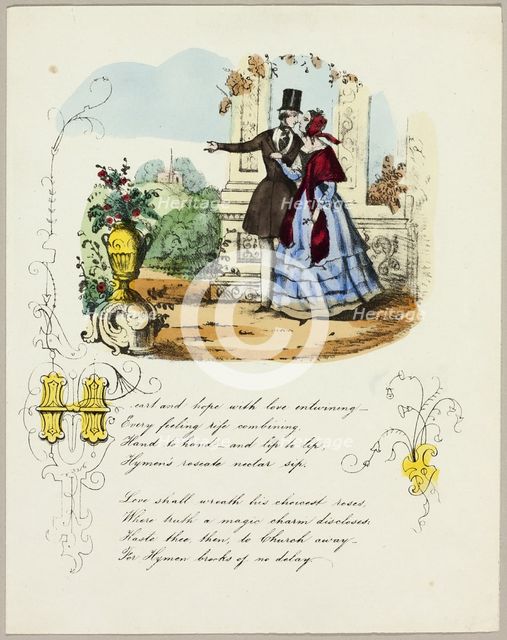 Heart and hope with love entwining—
Every feeling rife combining
Hand to hand, and lip to lip,
Hymen's roseate nectar sip.
Love shall wreath his choicest roses,
Where truth a magic charm discloses;
Haste thee, then, to Church away—
For Hymen brooks of no delay.